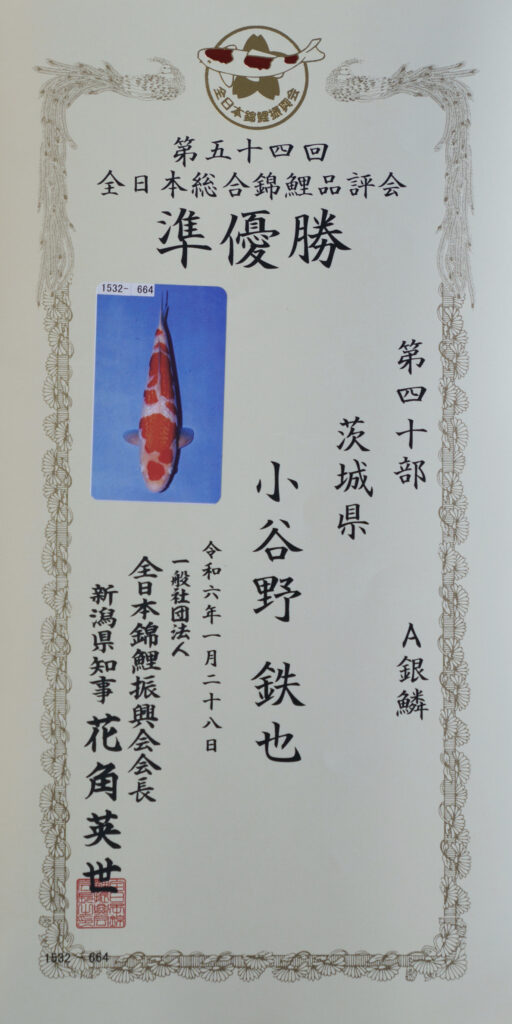 全日本錦鯉振興会
第五十四回
全日本総合錦鯉品評会
準優勝
1532- 664
第四十部 A銀鱗
茨城県
小谷野 鉄也
令和六年一月二十八日
一般社団法人
全日本錦鯉振興会会長
新潟県知事 花角英世
1532- 664